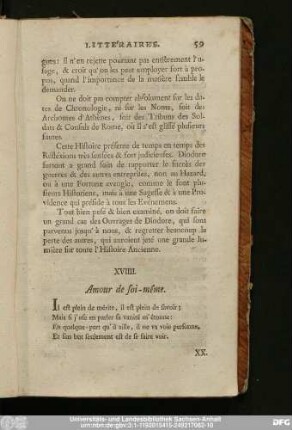 LITTÉRAIRES. 59
gues: il n'en rejette pourtant pas entiérement l'u-
sage, & croit qu'on les peut employer fort à pro-
pos, quand l'importance de la matiére semble le
demander.
On ne doit pas compter absolument sur les da-
tes de Chronologie, ni sur les Noms, soit des
Archontes d'Athènes, soit des Tribuns des Sol-
dats & Consuls de Rome, où il s'est glissé plusieurs
fautes.
Cette Histoire présente de temps en temps des
Réfléxions très sensées & fort judicieuses. Diodore
sur-tout a grand soin de rapporter le succès des
guerres & des autres entreprises, non au Hazard,
ou à une Fortune aveugle, comme le font plu-
sieurs Historiens, mais à une Sagesse & à une Pro-
vidence qui préside à tous les Evénemens.
Tout bien pesé & bien examiné, on doit faire
un grand cas des Ouvrages de Diodore, qui sont
parvenus jusqu'à nous, & regretter beaucoup la
perte des autres, qui auroient jetté une grande lu-
mière sur toute l'Histoire Ancienne.
XVIIII.
Amour de soi-même.
Il est plein de mérite, il est plein de savoir;
Mais si j'ose en parler sa vanité m'étonne:
En quelque-part qu'il aille, il ne va voir personne,
Et son but seulement est de se faire voir.
XX.
Universitäts- und Landesbibliothek Sachsen-Anhalt
urn:nbn:de:gbv:3:1-1192015415-249217062-10
DFG